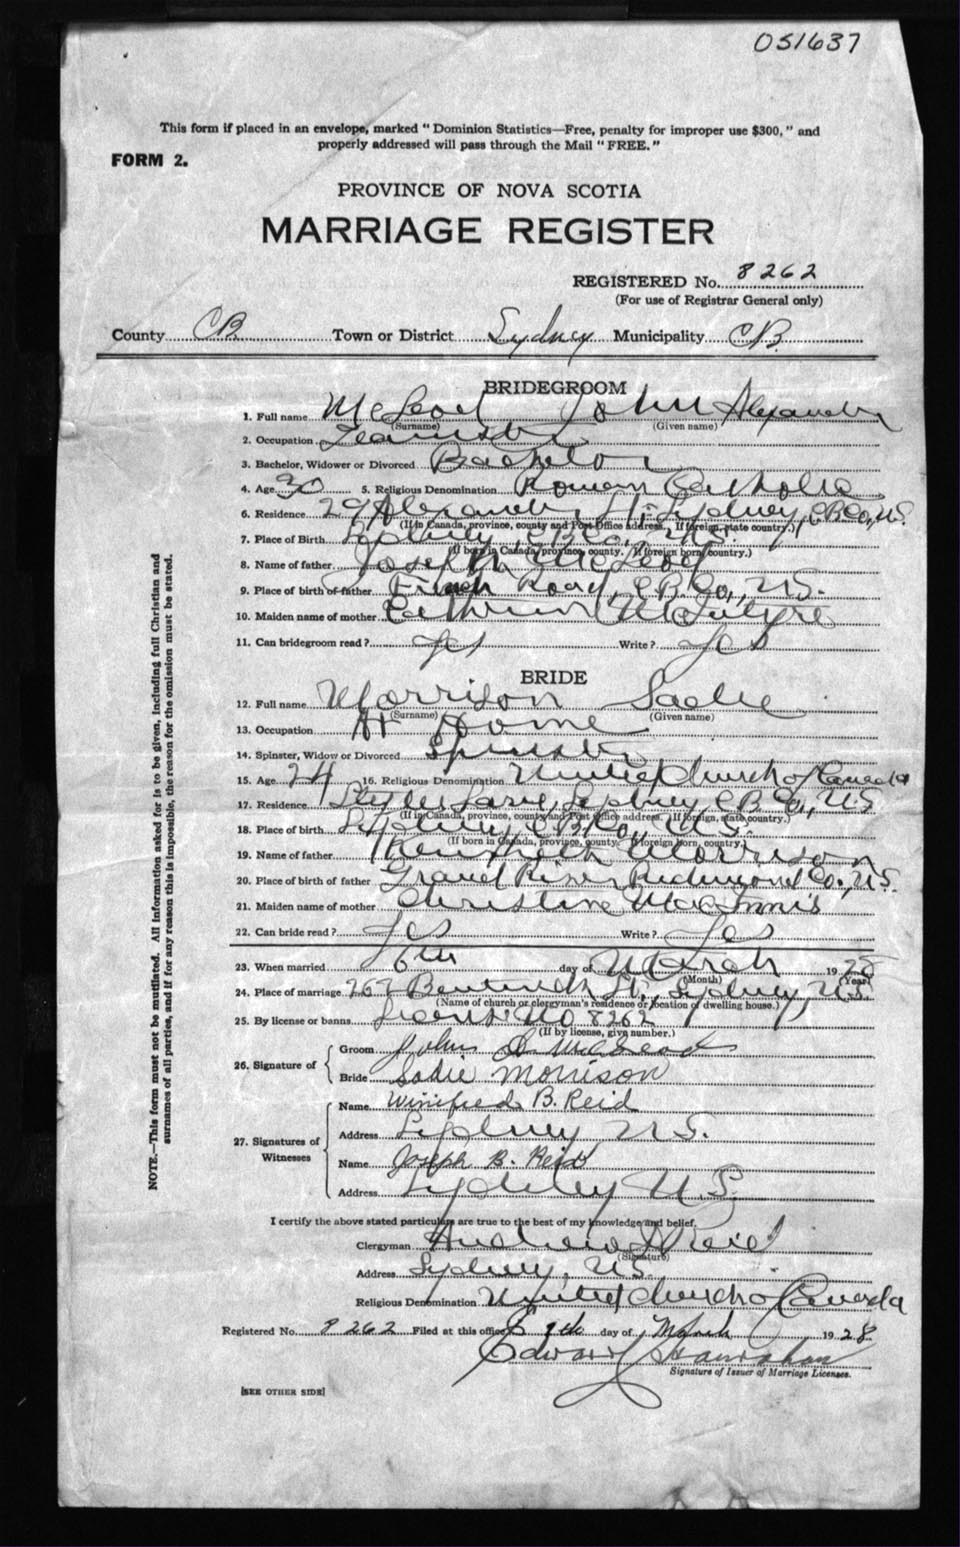 051637
This form if placed in an envelope, marked "Dominion Statistics—Free, penalty for improper use $300," and
properly addressed will pass through the Mail "FREE."
FORM 2.
PROVINCE OF NOVA SCOTIA
MARRIAGE REGISTER
REGISTERED No. 8262
(For use of Registrar General only)
County CB. Town or District Sydney Municipality CB.
BRIDEGROOM
1. Full name McLeod John Alexander
(Surname) (Given name)
2. Occupation Teamster
3. Bachelor, Widower or Divorced Bachelor
4. Age 30 5. Religious Denomination Roman Catholic
6. Residence 29 Alexander St. Sydney, C.B.Co., N.S.
(If in Canada, province, county and Post Office address. If foreign, state country.)
7. Place of Birth Sydney, C.B.Co., N.S.
(If born in Canada, province, county. If foreign born, country.)
8. Name of father Joseph McLeod
9. Place of birth of father French Road, C.B.Co., N.S.
10. Maiden name of mother McIntyre
11. Can bridegroom read? Yes Write? Yes
BRIDE
12. Full name Morrison Sadie
(Surname) (Given name)
13. Occupation At Home
14. Spinster, Widow or Divorced Spinster
15. Age 24 16. Religious Denomination United Church of Canada
17. Residence Sydney, C.B.Co., N.S.
(If in Canada, province, county and Post Office address. If foreign, state country.)
18. Place of birth Sydney, C.B.Co., N.S.
(If born in Canada, province, county. If foreign born, country.)
19. Name of father Kenneth Morrison
20. Place of birth of father Grand River Richmond Co., N.S.
21. Maiden name of mother Christine MacInnis
22. Can bride read? Yes Write? Yes
23. When married 6th day of March 1928
(Month) (Year)
24. Place of marriage St., Sydney, N.S.
(Name of church or clergyman's residence or location of dwelling house.)
25. By license or banns License No 8262
(If by license, give number.)
26. Signature of
Groom John
Bride Sadie Morrison
27. Signatures of Witnesses
Name Winifred B. Reid
Address Sydney N.S.
Name Joseph B. Reid
Address Sydney N.S.
I certify the above stated particulars are true to the best of my knowledge and belief.
Clergyman Andrew D Reid
(Signature)
Address Sydney, N.S.
Religious Denomination United Church of Canada
Registered No. 8262 Filed at this office 9th day of March 1928
Edward Hanrahan
Signature of Issuer of Marriage Licenses.
[SEE OTHER SIDE]
NOTE.—This form must not be mutilated. All information asked for is to be given, including full Christian and
surnames of all parties, and if for any reason this is impossible, the reason for the omission must be stated.